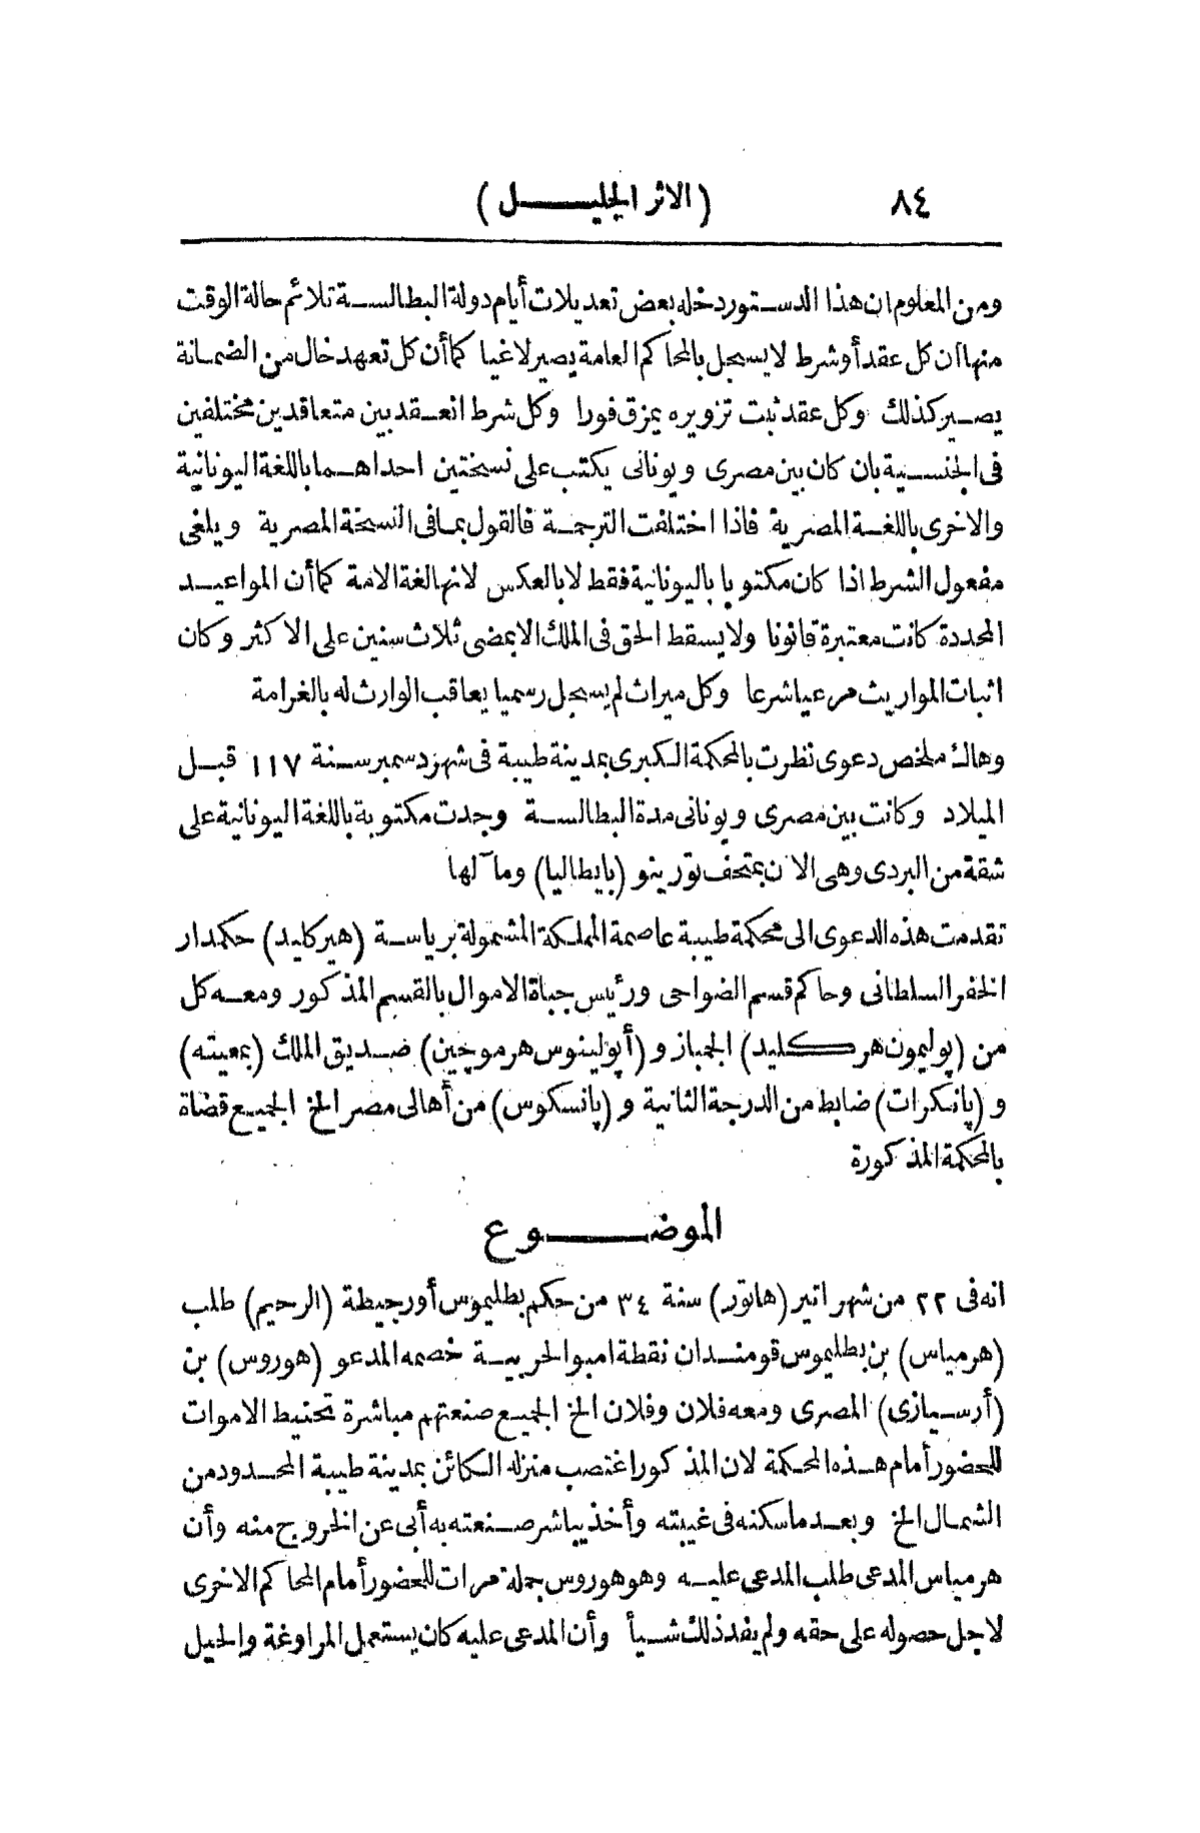 ٨٤ (الاثر الجليل)
ومن المعلوم ان هذا الدستور دخله بعض تعديلات أيام دولة البطالسة تلائم حالة الوقت
منها ان كل عقد أو شرط لا يسجل بالمحاكم العامة يصير لاغيا كما أن كل تعهد خال من الضمانة
يصير كذلك وكل عقد ثبت تزويره يمزق فورا وكل شرط انعقد بين متعاقدين مختلفين
فى الجنسية بان كان بين مصرى ويونانى يكتب على نسختين احداهما باللغة اليونانية
والاخرى باللغة المصرية فاذا اختلفت الترجمة فالقول بما فى النسخة المصرية ويلغى
مفعول الشرط اذا كان مكتوبا باليونانية فقط لا بالعكس لانها لغة الامة كما أن المواعيد
المحددة كانت معتبرة قانونا ولا يسقط الحق فى الملك الا بمضى ثلاث سنين على الاكثر وكان
اثبات المواريث مرعيا شرعا وكل ميراث لم يسجل رسميا يعاقب الوارث له بالغرامة
وهاك ملخص دعوى نظرت بالمحكمة الكبرى بمدينة طيبة فى شهر دسمبر سنة ١١٧ قبل
الميلاد وكانت بين مصرى ويونانى مدة البطالسة وجدت مكتوبة باللغة اليونانية على
شقة من البردى وهى الآن بمتحف تورينو (بايطاليا) ومآلها
تقدمت هذه الدعوى الى محكمة طيبة عاصمة المملكة المشمولة برياسة (هيركليد) حكمدار
الخفر السلطانى وحاكم قسم الضواحى ورئيس جباة الاموال بالقسم المذكور ومعه كل
من (پوليمون هركليد) الجمباز و (أپولينوس هرموچين) صديق الملك (بمعيته)
و (پانكرات) ضابط من الدرجة الثانية و (پانسكوس) من أهالى مصر الخ الجميع قضاة
بالمحكمة المذكورة
الموضوع
انه فى ٢٢ من شهر اتير (هاتور) سنة ٣٤ من حكم بطليموس أورجيطة (الرحيم) طلب
(هرمياس) بن بطليموس قومندان نقطة امبو الحربية خصمه المدعو (هوروس) بن
(أرسيازى) المصرى ومعه فلان وفلان الخ الجميع صنعتهم مباشرة تحنيط الاموات
للحضور أمام هذه المحكمة لان المذكور اغتصب منزله الكائن بمدينة طيبة المحدود من
الشمال الخ وبعد ما سكنه فى غيبته وأخذ يباشر صنعته به أبى عن الخروج منه وأن
هرمياس المدعى طلب المدعى عليه وهو هوروس جملة مرات للحضور أمام المحاكم الاخرى
لاجل حصوله على حقه ولم يفد ذلك شيأ وأن المدعى عليه كان يستعمل المراوغة والحيل